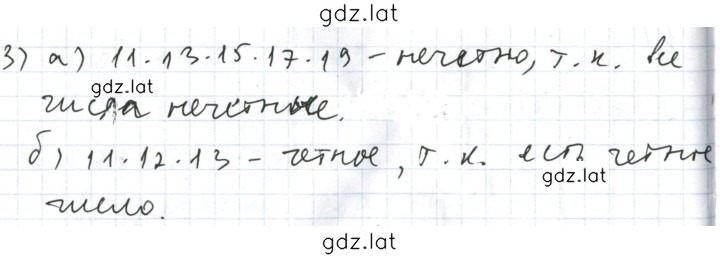 gdz.lat
3) а) 11·13·15·17·19 – нечетно, т.к. все
gdz.lat
числа нечетные.
б) 11·12·13 – четное, т.к. есть четное
gdz.lat
число.
gdz.lat